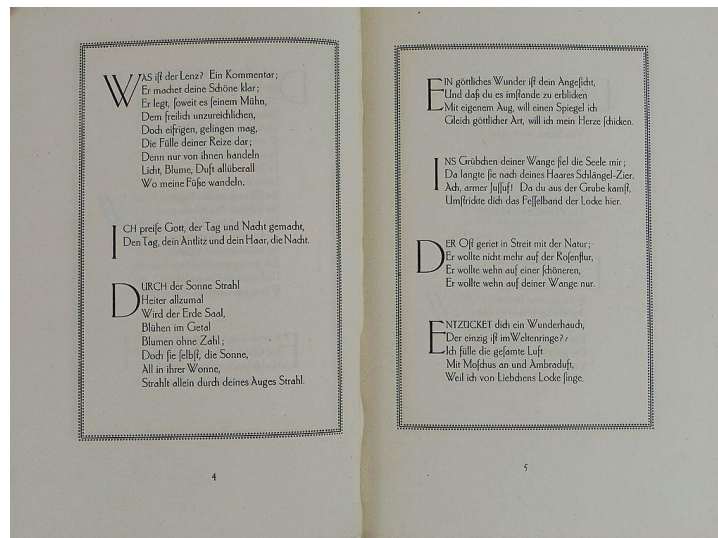 WAS iſt der Lenz? Ein Kommentar;
Er machet deine Schöne klar;
Er legt, ſoweit es ſeinem Mühn,
Dem freilich unzureichlichen,
Doch eifrigen, gelingen mag,
Die Fülle deiner Reize dar;
Denn nur von ihnen handeln
Licht, Blume, Duft allüberall
Wo meine Füße wandeln.
ICH preiſe Gott, der Tag und Nacht gemacht,
Den Tag, dein Antlitz und dein Haar, die Nacht.
DURCH der Sonne Strahl
Heiter allzumal
Wird der Erde Saal,
Blühen im Getal
Blumen ohne Zahl;
Doch ſie ſelbſt, die Sonne,
All in ihrer Wonne,
Strahlt allein durch deines Auges Strahl.
4
EIN göttliches Wunder iſt dein Angeſicht,
Und daß du es imſtande zu erblicken
Mit eigenem Aug, will einen Spiegel ich
Gleich göttlicher Art, will ich mein Herze ſchicken.
INS Grübchen deiner Wange fiel die Seele mir;
Da langte ſie nach deines Haares Schlängel-Zier.
Ach, armer Juſſuf! Da du aus der Grube kamſt,
Umſtrickte dich das Feſſelband der Locke hier.
DER Oſt geriet in Streit mit der Natur;
Er wollte nicht mehr auf der Roſenflur,
Er wollte wehn auf einer ſchöneren,
Er wollte wehn auf deiner Wange nur.
ENTZÜCKET dich ein Wunderhauch,
Der einzig iſt im Weltenringe?
Ich fülle die geſamte Luft
Mit Moſchus an und Ambraduft,
Weil ich von Liebchens Locke ſinge.
5